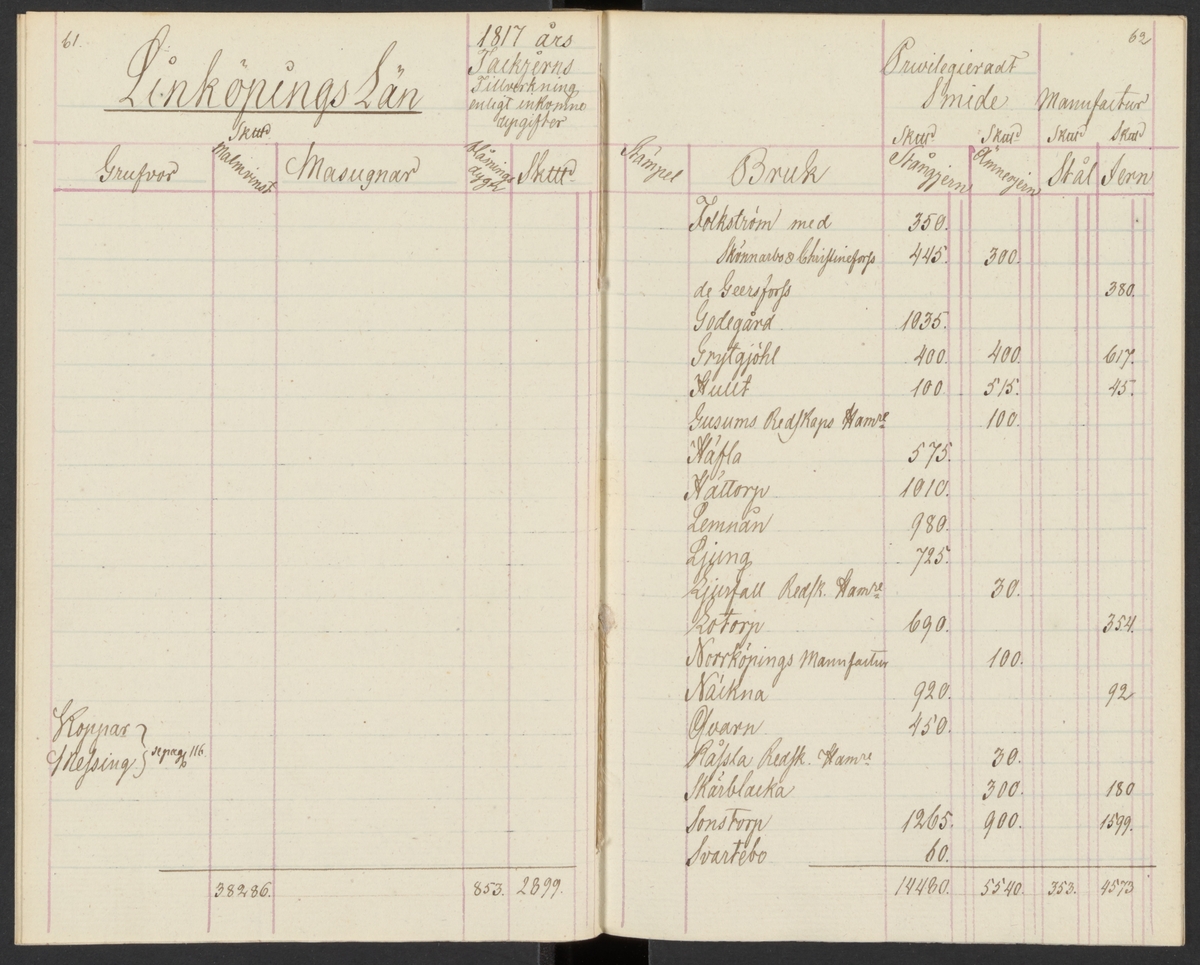 61.
Linköpings Län
1817 års
Tackjerns
Tillverkning
enligt inkomne
upgifter
Grufvor
Skttd
Malmvinst
Masugnar
Blåsnings
dygn
Skttd
38286.
853.
2899.
Koppar
Messing } se pag 116
62
Privilegieradt
Smide
Manufactur
Skttd Skttd Skttd Skttd
Stämpel Bruk Stångjern Ämnesjern Stål Jern
Folkström med 350.
Skönnarbo & Christineforss 445. 300.
de Geersforss 380.
Godegård 1035.
Grytgjöhl 400. 400. 617.
Hult 100. 515. 45.
Gusums Redskaps Hamre 100.
Häfla 575.
Hättorp 1010.
Lemnån 980.
Ljung 725.
Ljusfall Redsk. Hamre 30.
Lotorp 690. 354.
Norrköpings Manufactur 100.
Näckna 920. 92
Qvarn 450.
Råssla Redsk. Hamre 30.
Skärblacka 300. 180
Sonstorp 1265. 900. 1599.
Svartebo 60.
14480. 5540. 353. 4573